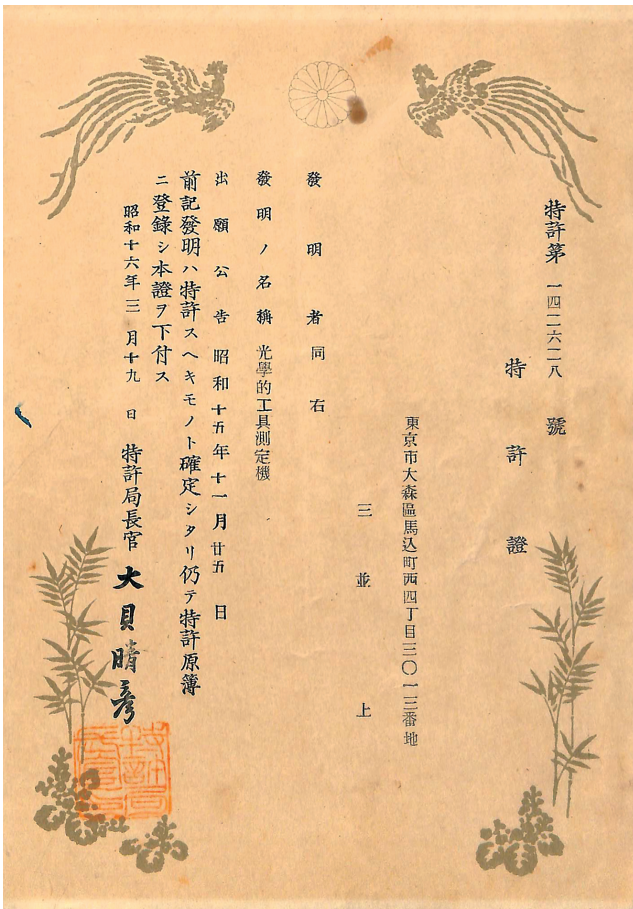 特許第 一四二六二八 號
特許證
東京市大森區馬込町西四丁目三〇一三番地
三並上
發明者 同右
發明ノ名稱 光學的工具測定機
出願公告 昭和十五年十一月廿五日
前記發明ハ特許スヘキモノト確定シタリ仍テ特許原簿
ニ登錄シ本證ヲ下付ス
昭和十六年三月十九日 特許局長官 大貝晴彥